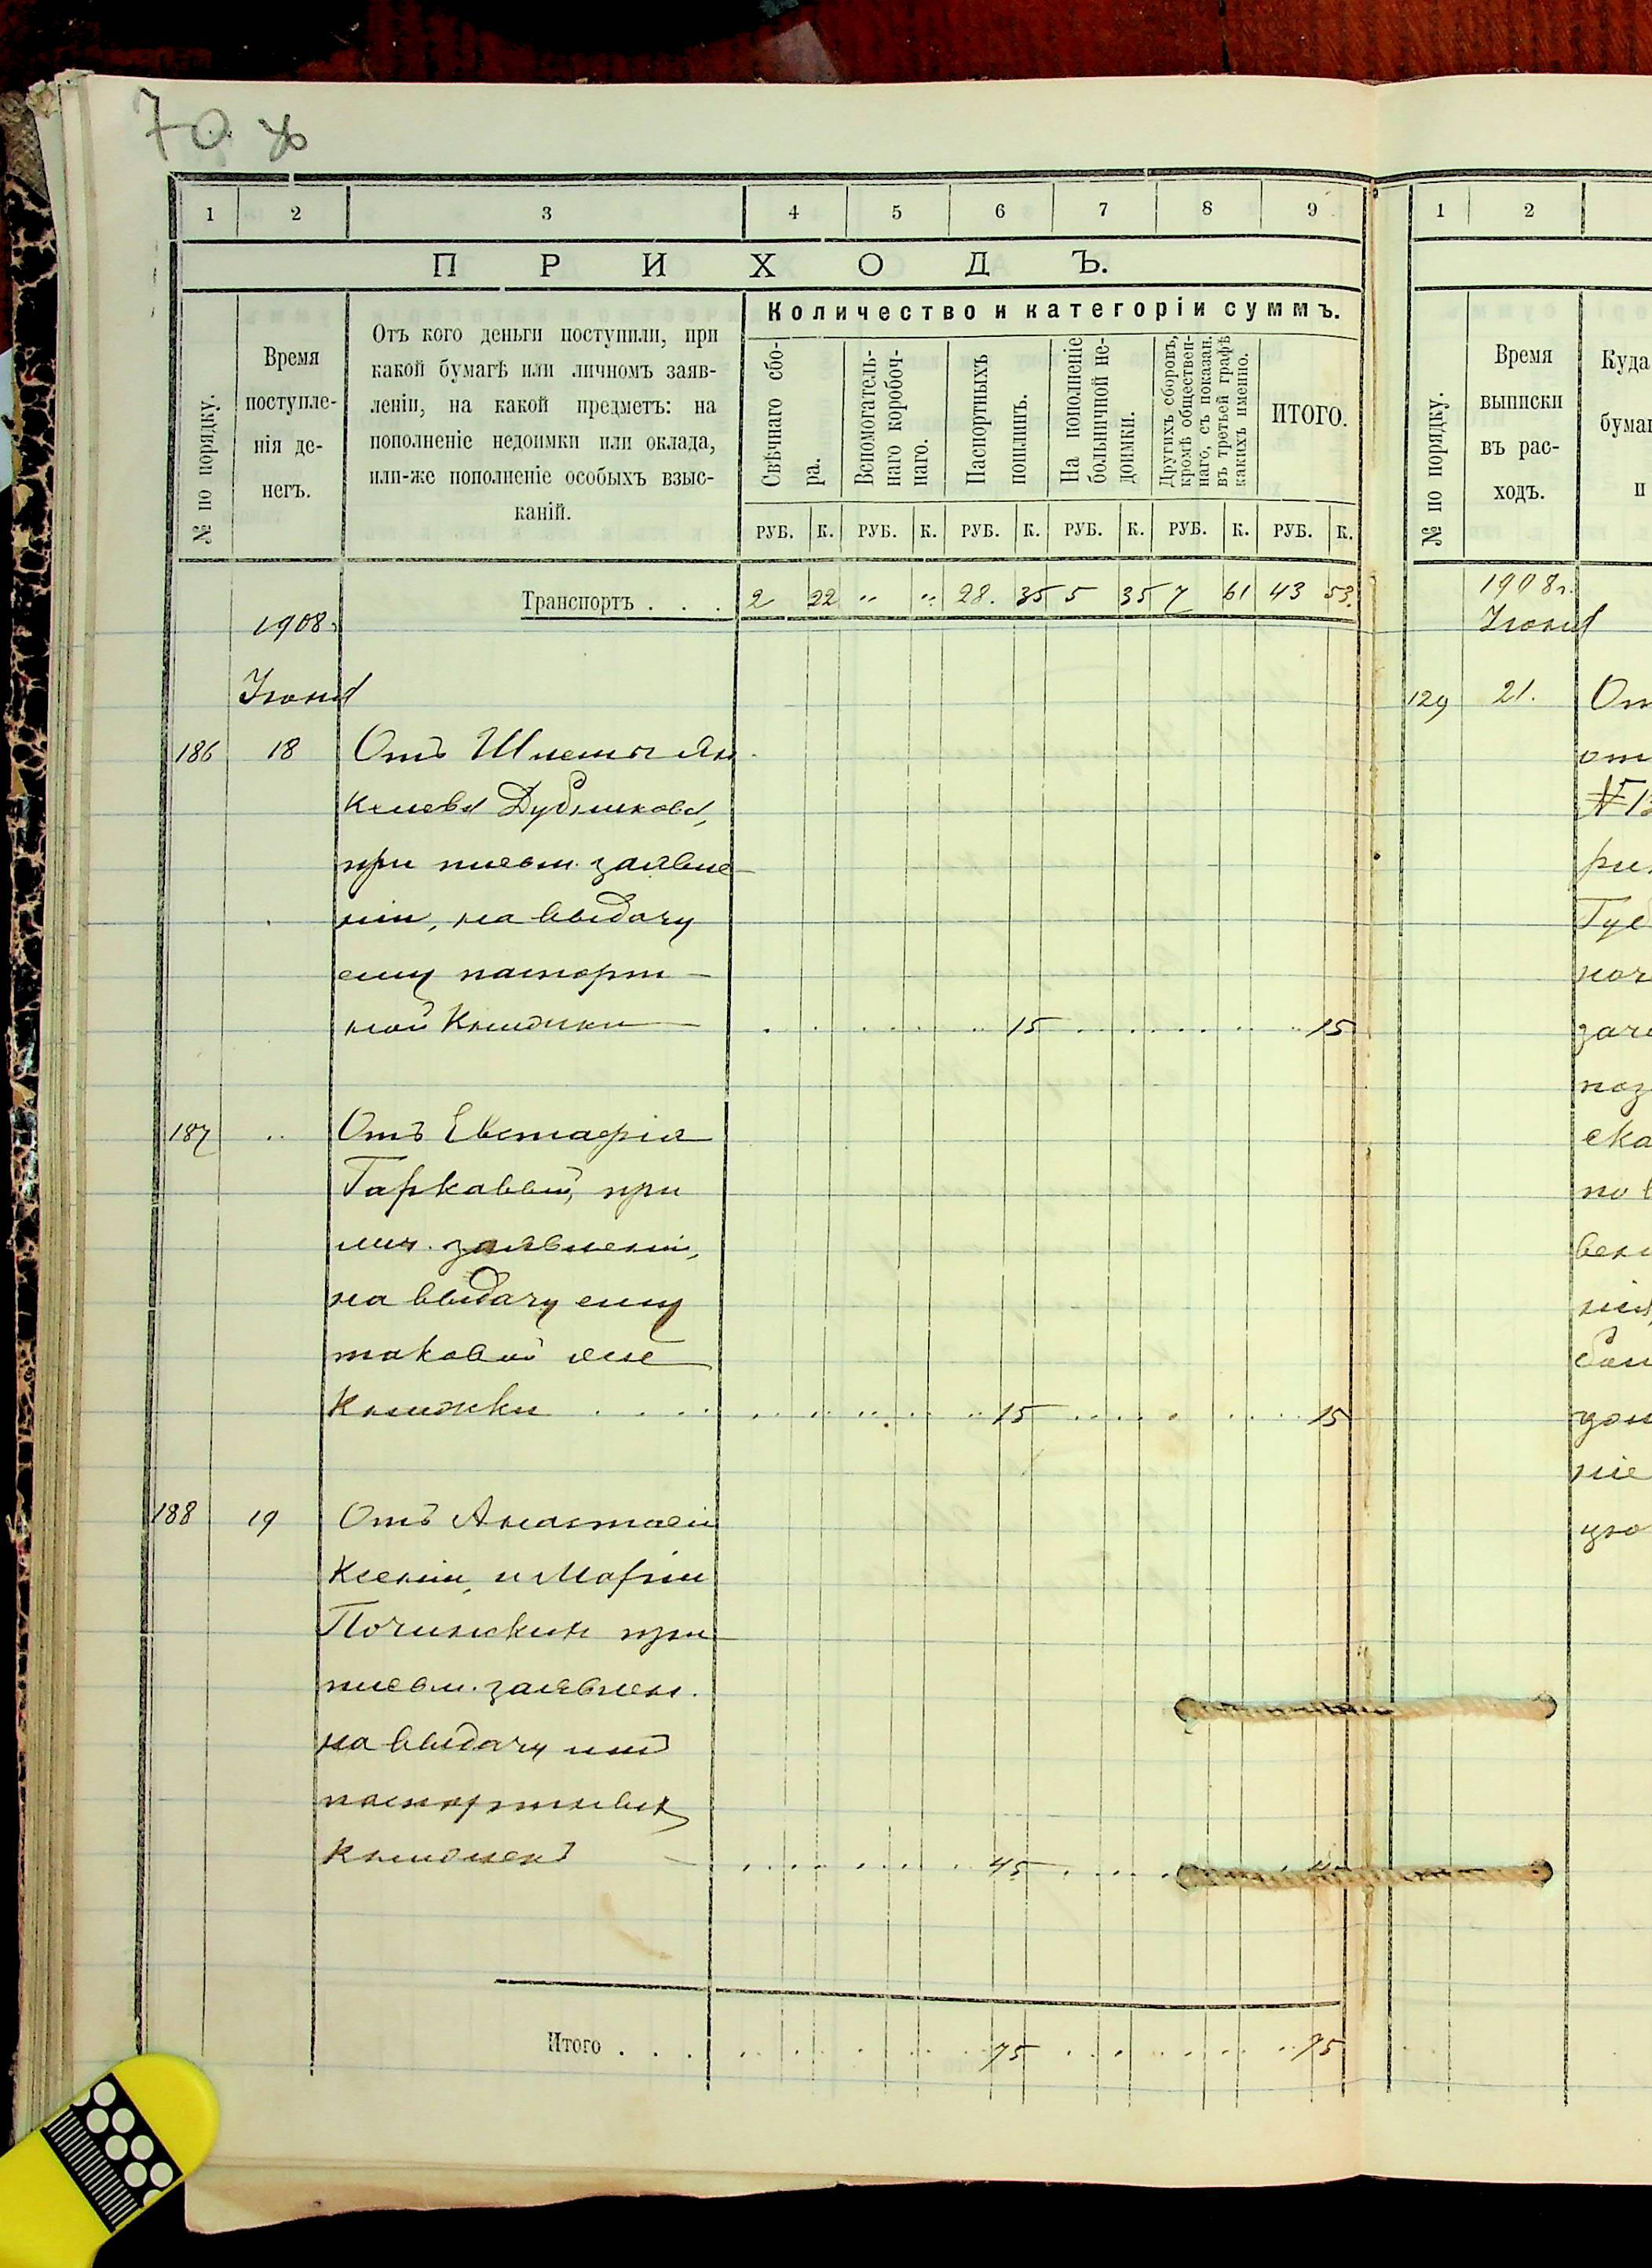 70
1 2 3 4 5 6 7 8 9
ПРИХОДЪ.
№ по порядку.
Время
поступле-
нія де-
негъ.
Отъ кого деньги поступили, при
какой бумагѣ или личномъ заяв-
леніи, на какой предметъ: на
пополненіе недоимки или оклада,
или-же пополненіе особыхъ взыс-
каній.
Количество и категоріи суммъ.
Свѣчнаго сбо-
ра.
Вспомогатель-
наго коробоч-
наго.
Паспортныхъ
пошлинъ.
На пополненіе
больничной не-
доимки.
Другихъ сборовъ,
кромѣ обществен-
наго, съ показан.
въ третьей графѣ
какихъ именно.
ИТОГО.
РУБ. К. РУБ. К. РУБ. К. РУБ. К. РУБ. К. РУБ. К.
Транспортъ . . . 2 22 " " 28. 35 5 35 7 61 43 53.
1908г.
Іюня
186 18 Отъ Шлемы Ян-
келева Дубникова,
при письм. заявле-
ніи, на выдачу
ему паспорт-
ной Книжки 15 15
187 .. Отъ Евстафія
Гаркавый, при
лич. заявленіи,
на выдачу ему
таковой же
Книжки . . . . 15 15
188 19 Отъ Анастасіи
Ксеніи, и Маріи
Починскихъ при
письм. заявлен.
на выдачу имъ
паспортныхъ
Книжекъ 45
Итого . . . 75 75
1 2
№ по порядку.
Время
выписки
въ рас-
ходъ.
Куда
бумаг
п
1908г.
Іюня
129 21. От
от
№ 13
ри
Губ
нач
зач
каз
ска
по в
вен
нія
дои
ніе